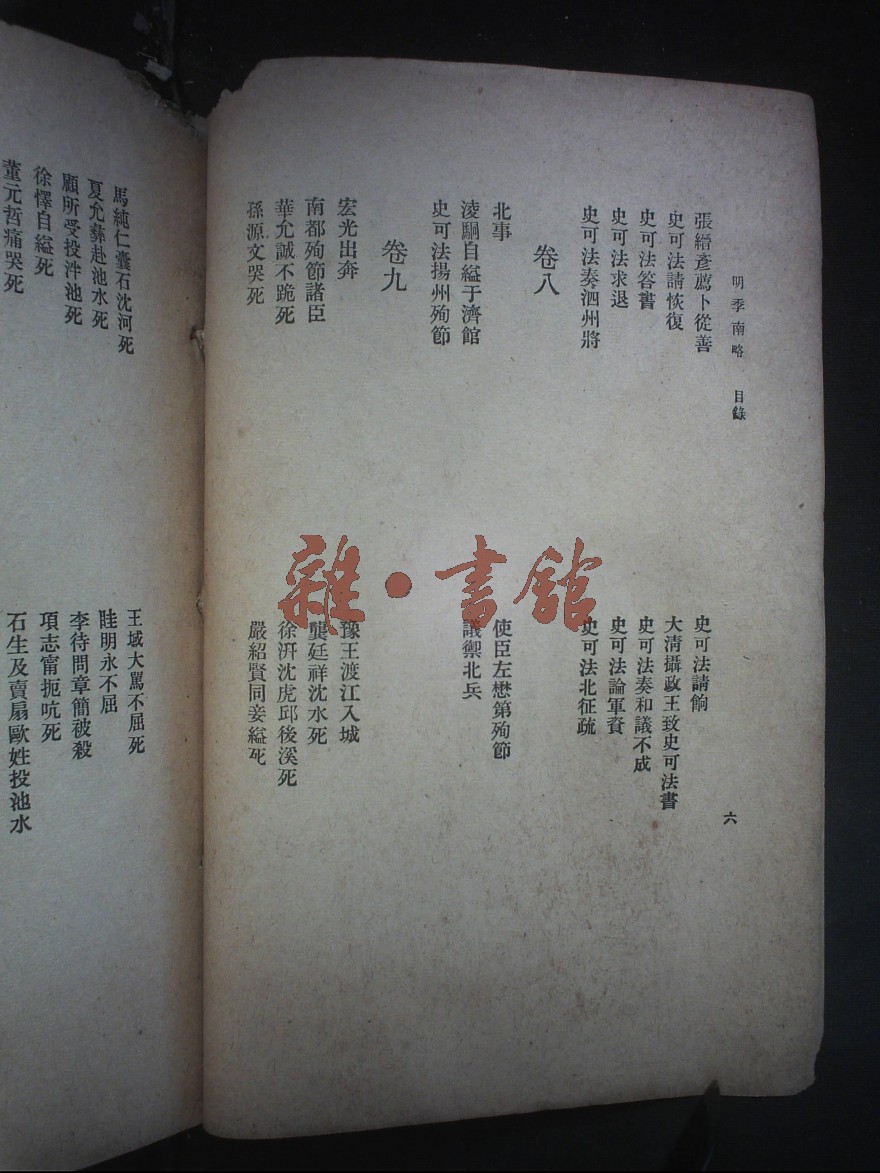 明季南略 目錄 六
張縉彥薦卜從善 史可法請餉
史可法請恢復 大清攝政王致史可法書
史可法答書 史可法奏和議不成
史可法求退 史可法論軍資
史可法奏泗州將 史可法北征疏
卷八
北事 使臣左懋第殉節
淩駉自縊于濟館 議禦北兵
史可法揚州殉節
卷九
宏光出奔 豫王渡江入城
南都殉節諸臣 龔廷祥沈水死
華允誠不跪死 徐汧沈虎邱後溪死
孫源文哭死 嚴紹賢同妾縊死
馬純仁囊石沈河死 王域大罵不屈死
夏允彝赴池水死 眭明永不屈
顧所受投泮池死 李待問章簡被殺
徐懌自縊死 項志甯扼吭死
董元哲痛哭死 石生及賣扇歐姓投池水
雜·書館